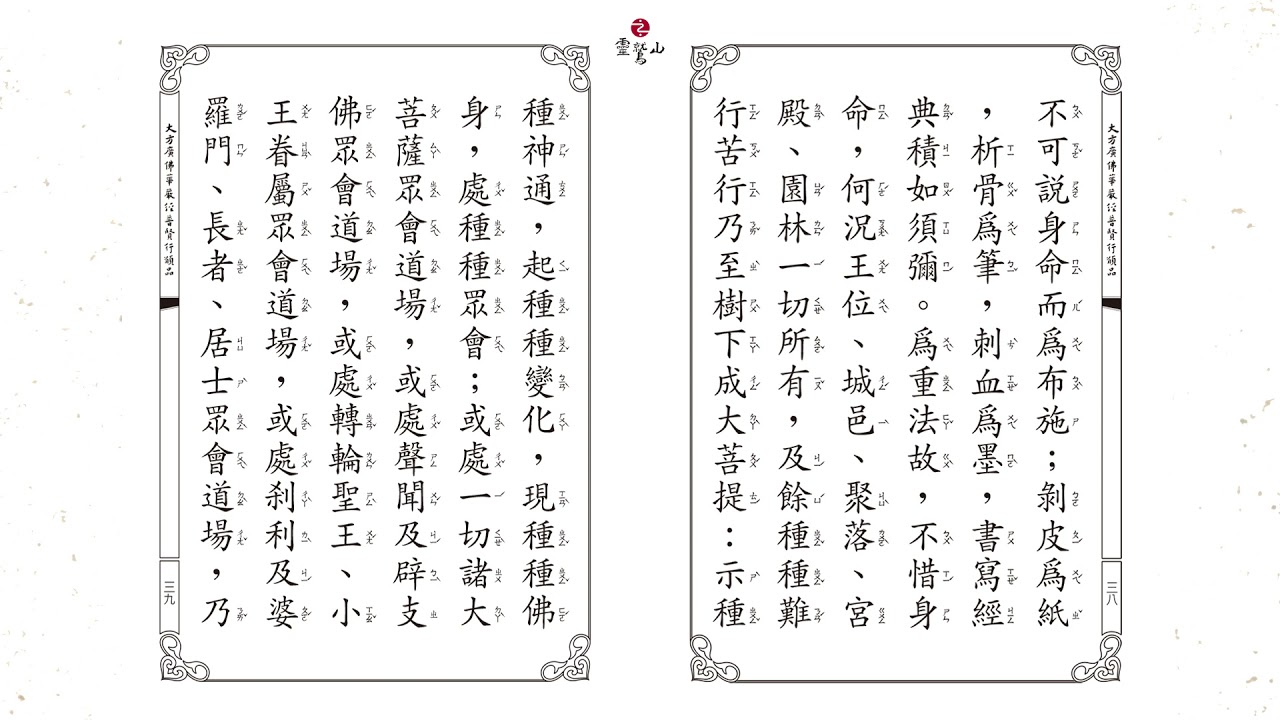 靈鷲山
大方廣佛華嚴經普賢行願品
三八
不可說身命而爲布施；剝皮爲紙
，析骨爲筆，刺血爲墨，書寫經
典積如須彌。爲重法故，不惜身
命，何況王位、城邑、聚落、宮
殿、園林一切所有，及餘種種難
行苦行乃至樹下成大菩提：示種
種神通，起種種變化，現種種佛
身，處種種眾會；或處一切諸大
菩薩眾會道場，或處聲聞及辟支
佛眾會道場，或處轉輪聖王、小
王眷屬眾會道場，或處刹利及婆
羅門、長者、居士眾會道場，乃
大方廣佛華嚴經普賢行願品
三九